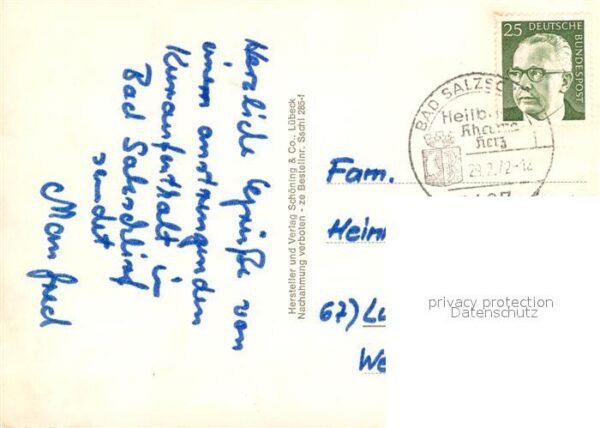 Herzliche Grüße von
einem anstrengenden
Kuraufenthalt in
Bad Salzschlirf
sendet
Manfred
Hersteller und Verlag Schöning & Co., Lübeck
Nachahmung verboten - ze Bestellnr. Sschl 285-f
25 DEUTSCHE BUNDESPOST
BAD SALZSC
Heilb
Rheuma
Herz
29.2.72-12
Fam.
Hein
67) Lu
We
privacy protection
Datenschutz